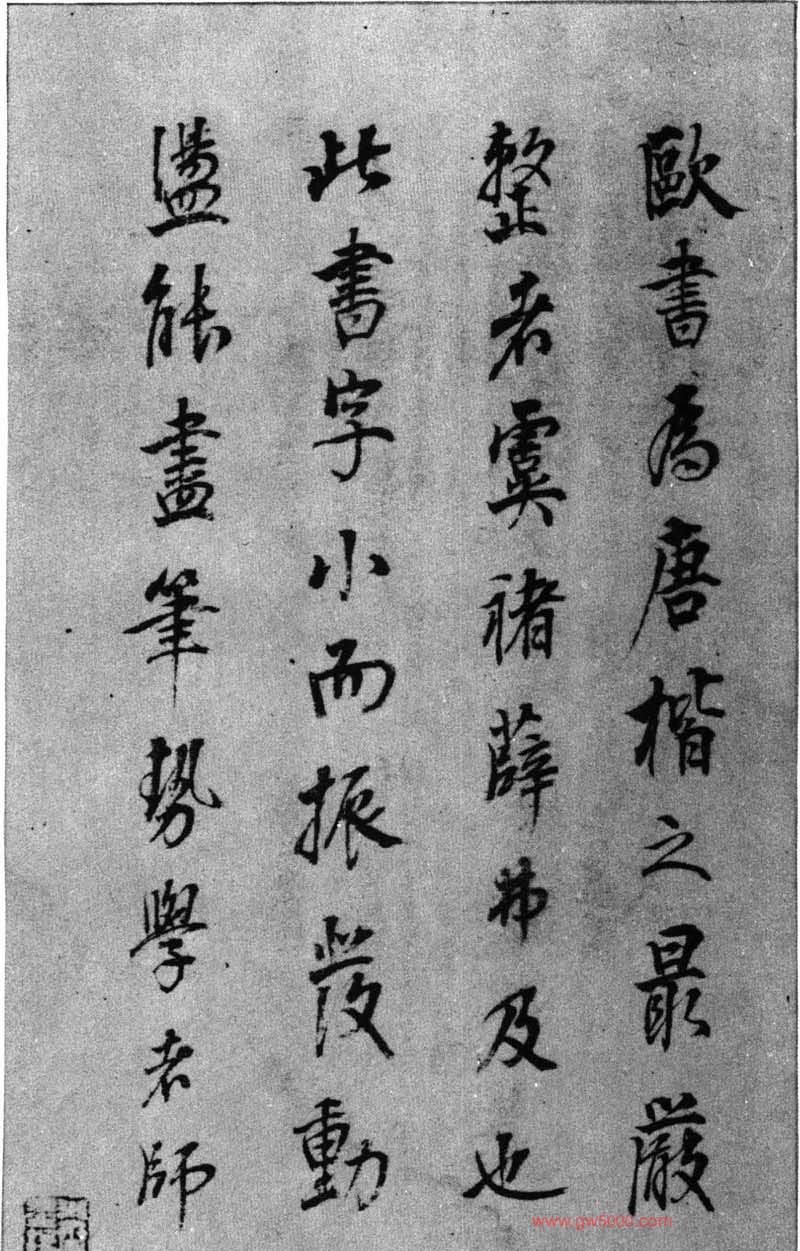 歐書為唐楷之最嚴
整者虞褚薛弗及也
此書字小而振發動
盪能盡筆勢學者師
www.gw5000.com